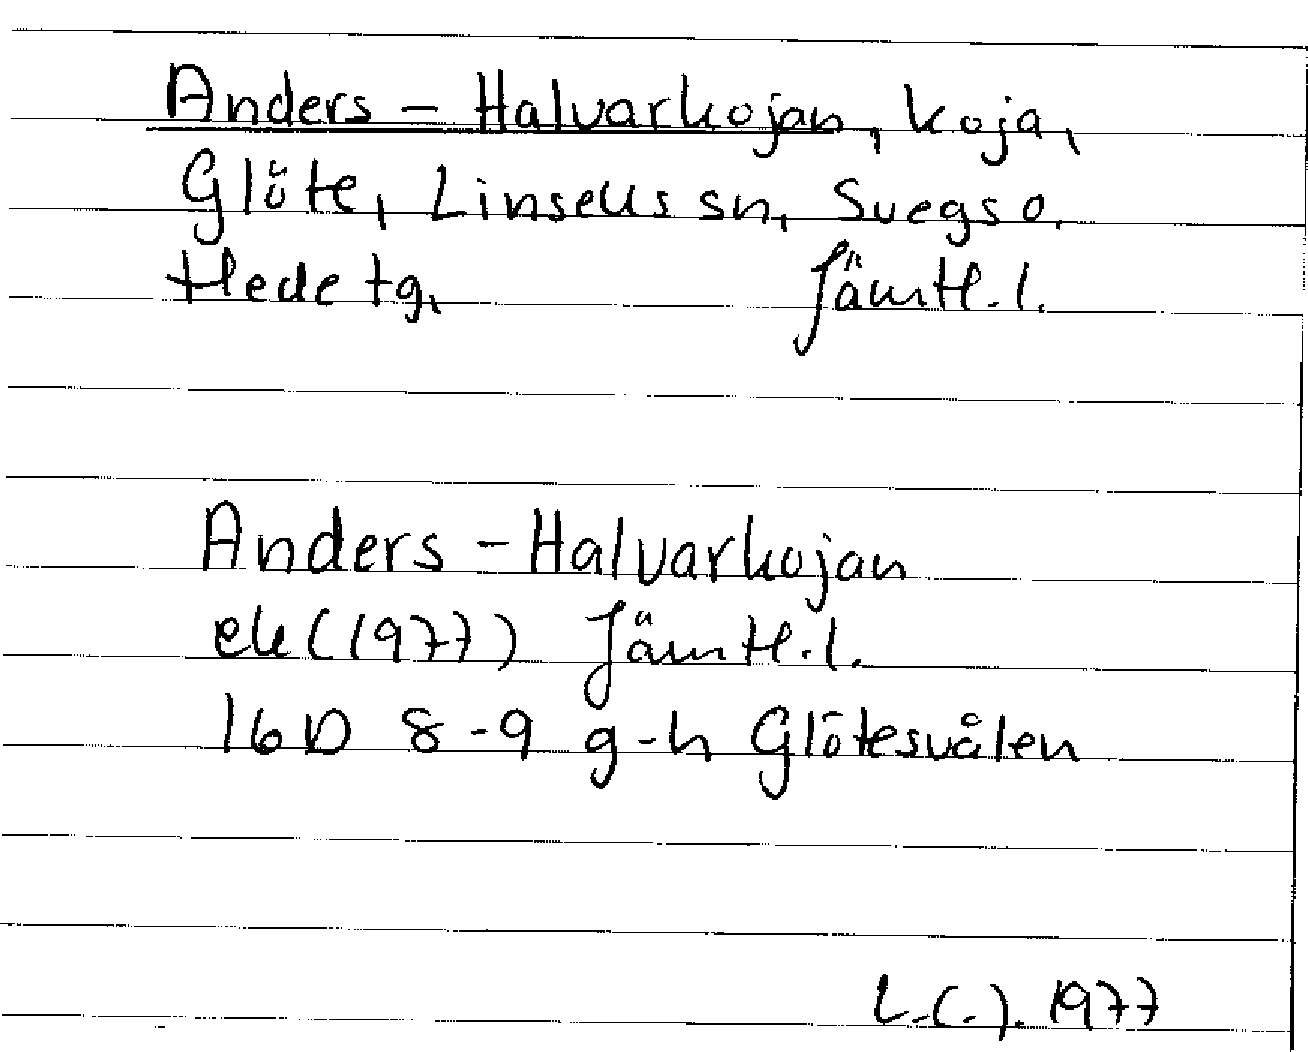 Anders-Halvarkojan, koja,
Glöte, Linsells sn, Svegs o,
Hede tg, Jämtl.l.
Anders-Halvarkojan
ek (1977) Jämtl.l.
16D 8-9 g-h Glötesvålen
1977